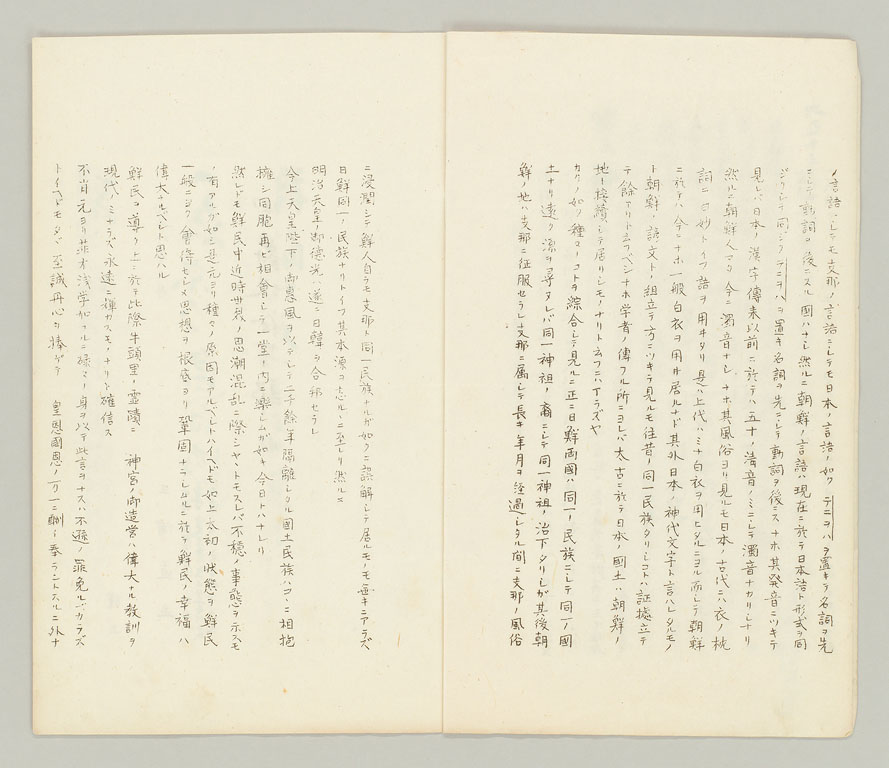 ノ言語ニシテモ支那ノ言語ニシテモ日本ノ言語ノ如クテニヲハヲ置キテ名詞ヲ先
ニシテ動詞ヲ後ニスル國ハナシ然ルニ朝鮮ノ言語ハ現在ニ於テ日本語ト形式ヲ同
ジクシテ同ジクテニヲハヲ置キ名詞ヲ先ニシテ動詞ヲ後ニスナホ其發音ニツキテ
見レバ日本ノ漢字傳来以前ニ於テハ五十ノ清音ノミニシテ濁音ナカリシナリ
然ルニ朝鮮人マタ今ニ濁音ナシナホ其風俗ヨリ見ルモ日本ノ古代ニハ衣ノ枕
詞ニ白妙トイフ語ヲ用キタリ是ハ上代ハミナ白衣ヲ用ヒタルニヨル而シテ朝鮮
ニ於テハ今ニナホ一般白衣ヲ用ヰ居ルナド其外日本ノ神代文字ト言ハレタルモノ
ト朝鮮ノ諺文トノ組立テ方ニツキテ見ルモ往昔ノ同一民族タリシコトハ証據立テ
テ餘アリト云フベシナホ学者ノ傳フル所ニヨレバ太古ニ於テ日本ノ國土ハ朝鮮ノ
地ト接續シテ居リシモノナリト云フニハアラズヤ
カクノ如ク種々ノコトヲ綜合シテ見ルニ正ニ日鮮両國ハ同一ノ民族ニシテ同一ノ國
土ナリ遠ク源ヲ尋ヌレバ同一神祖ノ裔ニシテ同一神祖ノ治下タリシガ其後朝
鮮ノ地ハ支那ニ征服セラレ支那ニ属シテ長キ年月ヲ經過シタル間ニ支那ノ風俗
ニ浸潤シテ鮮人自ラモ支那ト同一民族ナルガ如クニ誤解シテ居ルモノモ無キニアラズ
日鮮同一ノ民族ナリトイフ其本源ヲ忘ルヽニ至レリ然ルニ
明治天皇ノ御徳光ハ遂ニ日韓ヲ合邦セラレ
今上天皇陛下ノ御惠風ヲ以テシテ二千餘年隔離シタル國土民族ハコヽニ相抱
擁シ同胞再ビ相會シテ一堂ノ内ニ樂シムガ如キ今日トハナレリ
然レドモ鮮民中近時世界ノ思潮混乱ニ際シヤヽトモスレバ不穏ノ事態ヲ示スモ
ノ有アルガ如シ是元ヨリ種々ノ原因モアルベシトハイヘドモ如上太初ノ狀態ヲ鮮民
一般ニヨク會得セシメ思想ノ根底ヨリ鞏固ナラシムルニ於テ鮮民ノ幸福ハ
偉大ナルベシト思ハル
鮮民ヲ導ク上ニ於テ此際牛頭里ノ霊蹟ニ 神宮ノ御造営ハ偉大ナル教訓ヲ
現代ノミナラズ永遠ニ裨カスモノナリト確信ス
不肖元ヨリ菲才浅学如フルニ碌々ノ身ヲ以テ此言ヲナスハ不遜ノ罪免ルベカラズ
トイヘドモタヾ至誠丹心ヲ捧ゲテ 皇恩國恩ノ万一ニ酬ヒ奉ラントスルニ外ナ